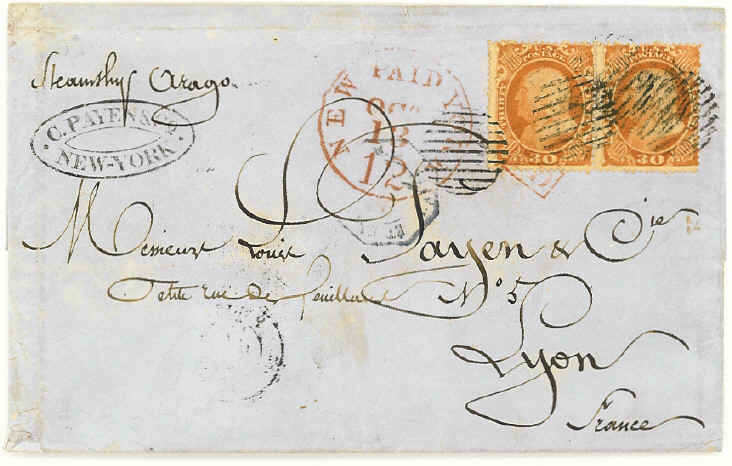 Steamship Arago.
C. PAYEN & Co
NEW-YORK
NEW YORK
PAID
OCT
12
30
30
Messieurs Louis Payen & Cie
Petite rue des feuillants No 5
Lyon
France